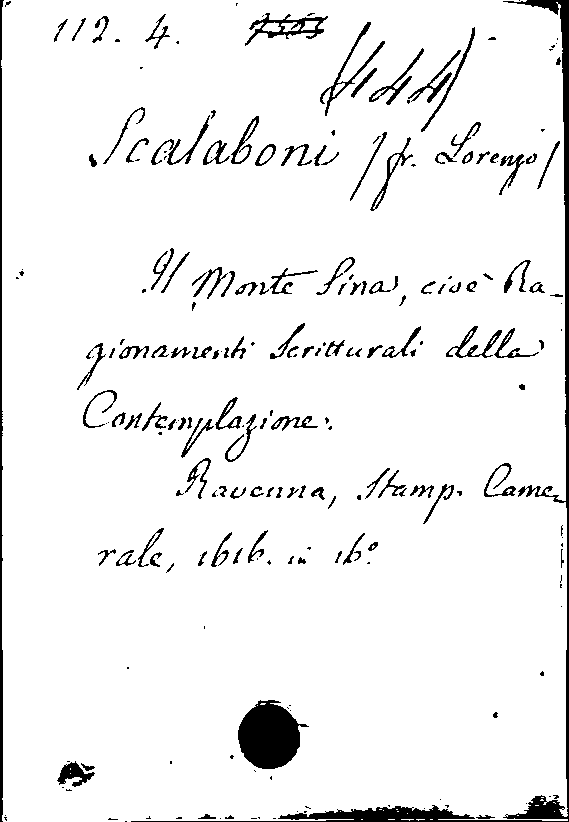 112. 4.
(444)
Scalaboni /fr. Lorenzo/
Il Monte Sina, cioè Ra-
gionamenti Scritturali della
Contemplazione.
Ravenna, Stamp. Came-
rale, 1616. in 16º